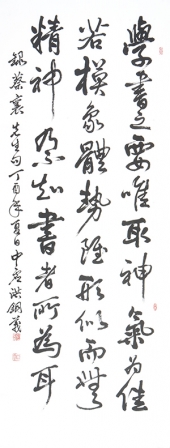 學書之要唯取神氣為佳
若模象體勢雖形似而無
精神乃不知書者所為耳
錄蔡襄先生句丁酉年夏日中彥洪鋼義